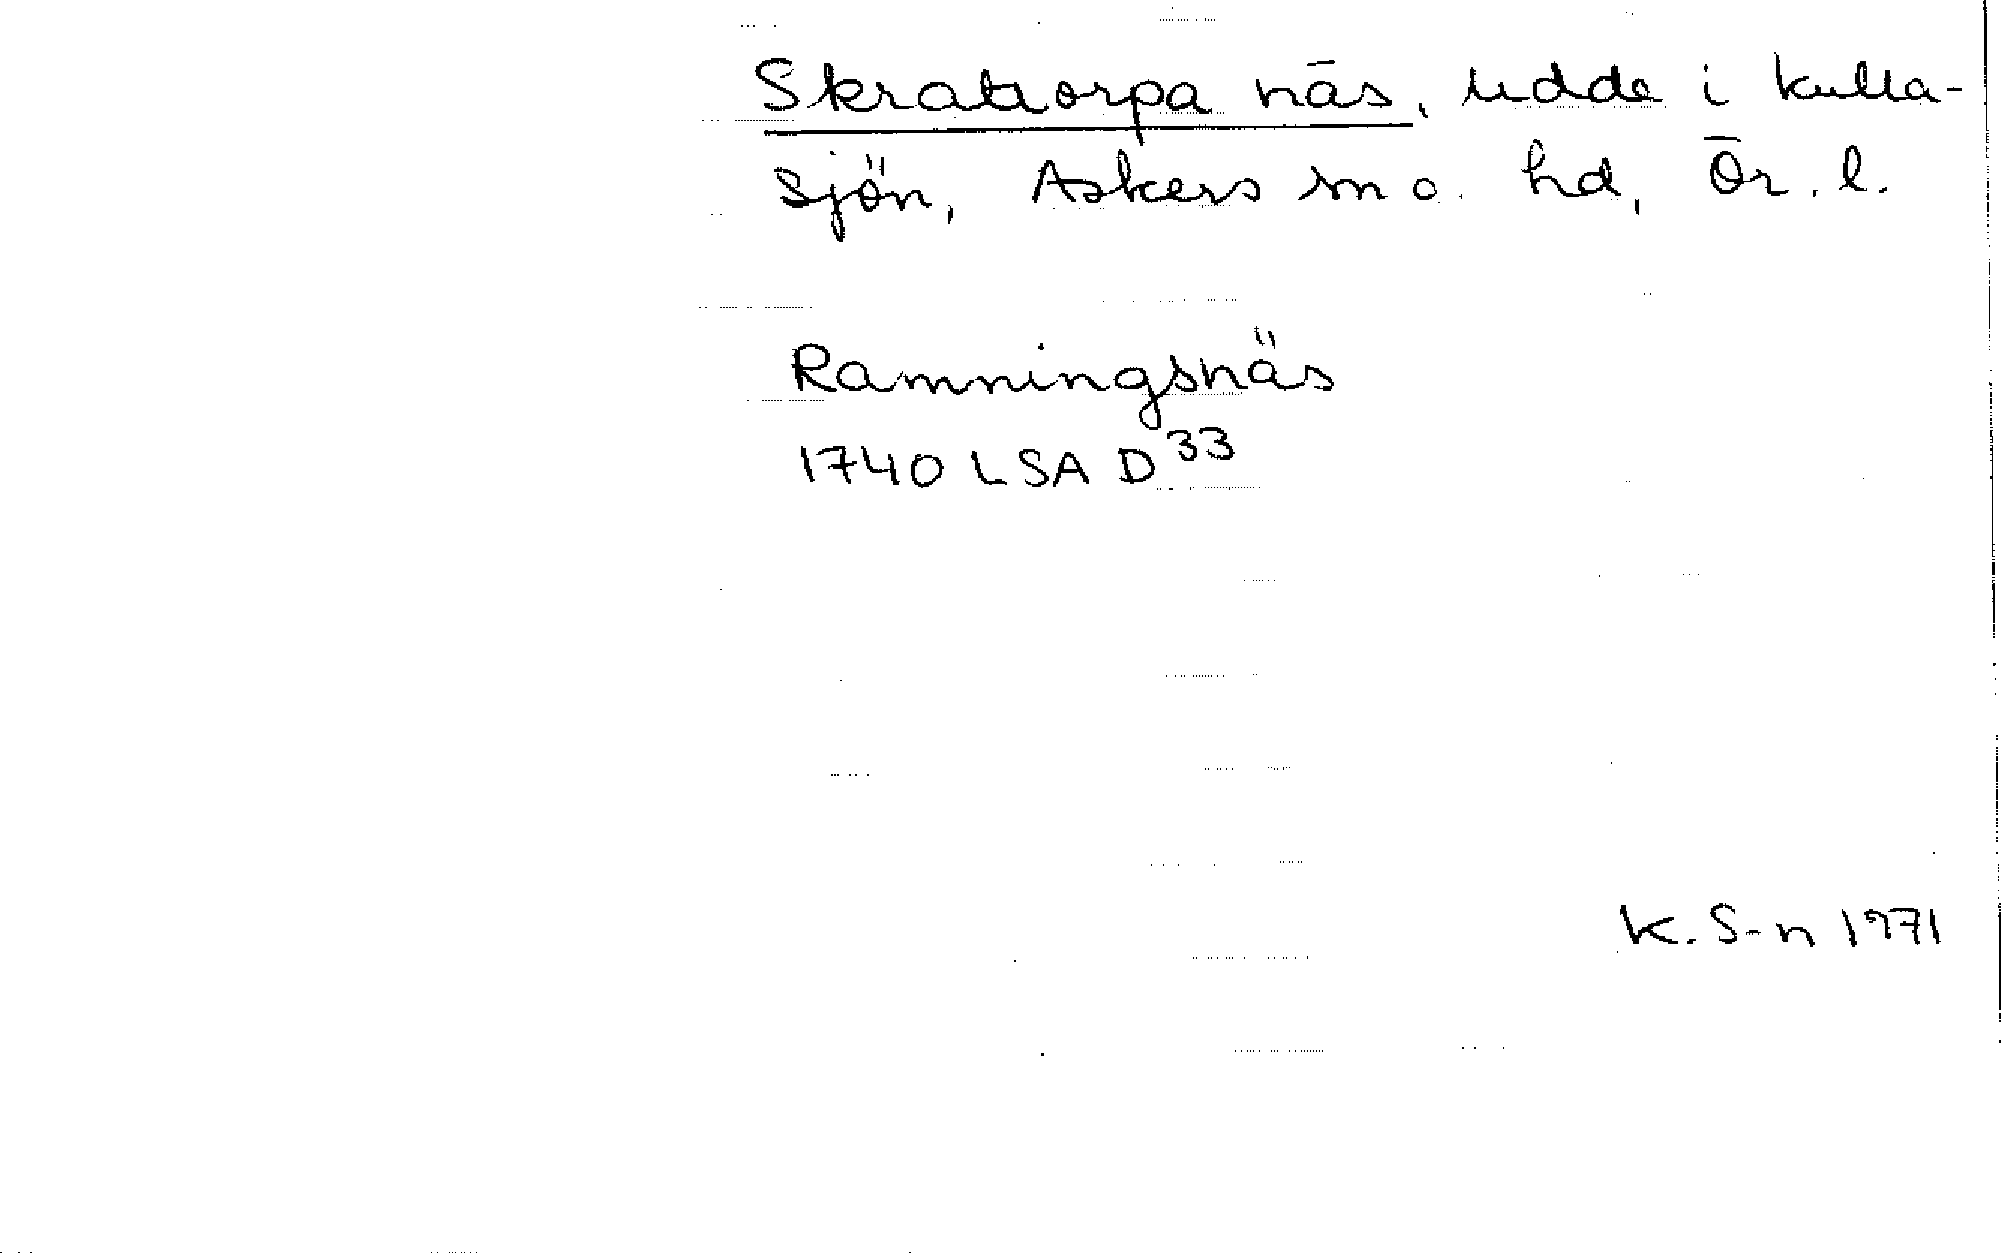 Skrattorpa näs, udde i Kulla-
sjön, Askers sn o. hd, Ör. l.
Ramningsnäs
1740 LSA D 33
K. S-n 1971